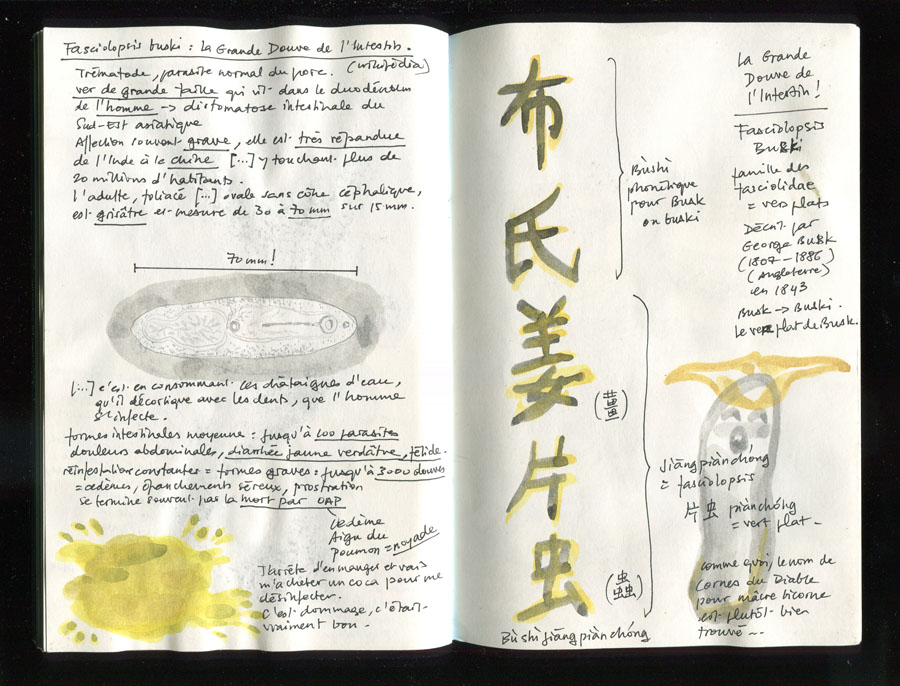 Fasciolopsis buski : La Grande Douve de l'Intestin.
(wikipédia)
Trématode, parasite normal du porc.
ver de grande taille qui vit dans le duodénum
de l'homme → distomatose intestinale du
Sud-Est asiatique
Affection souvent grave, elle est très répandue
de l'Inde à la Chine [...] y touchant plus de
20 millions d'habitants.
L'adulte, foliacé [...] ovale sans cône céphalique,
est grisâtre et mesure de 30 à 70 mm sur 15 mm.
70 mm !
[...] c'est en consommant ces châtaignes d'eau,
qu'il décortique avec les dents, que l'homme
s'infecte.
formes intestinales moyenne : jusqu'à 100 parasites
douleurs abdominales, diarrhée jaune verdâtre, fétide.
réinfestation constantes = formes graves : jusqu'à 3000 douves
= œdèmes, épanchements séreux, prostration
se termine souvent par la mort par OAP
Œdème
Aigu du
Poumon = noyade
J'arrête d'en manger et vais
m'acheter un coca pour me
désinfecter.
C'est dommage, c'était
vraiment bon.
布氏姜片虫
(薑)
(蟲)
Bù shì jiāng piàn chóng
Bùshì
phonétique
pour Busk
ou buski
Jiāngpiànchóng
= fasciolopsis
片虫 piànchóng
= vert plat -
La Grande
Douve de
l'Intestin !
Fasciolopsis
Buski
famille des
fasciolidae
= vers plats
Décrit par
George Busk
(1807-1886)
(Angleterre)
en 1843
Busk → Buski.
Le ver plat de Busk.
comme quoi, le nom de
Cornes du Diable
pour mâcre licorne
est plutôt bien
trouvé ~